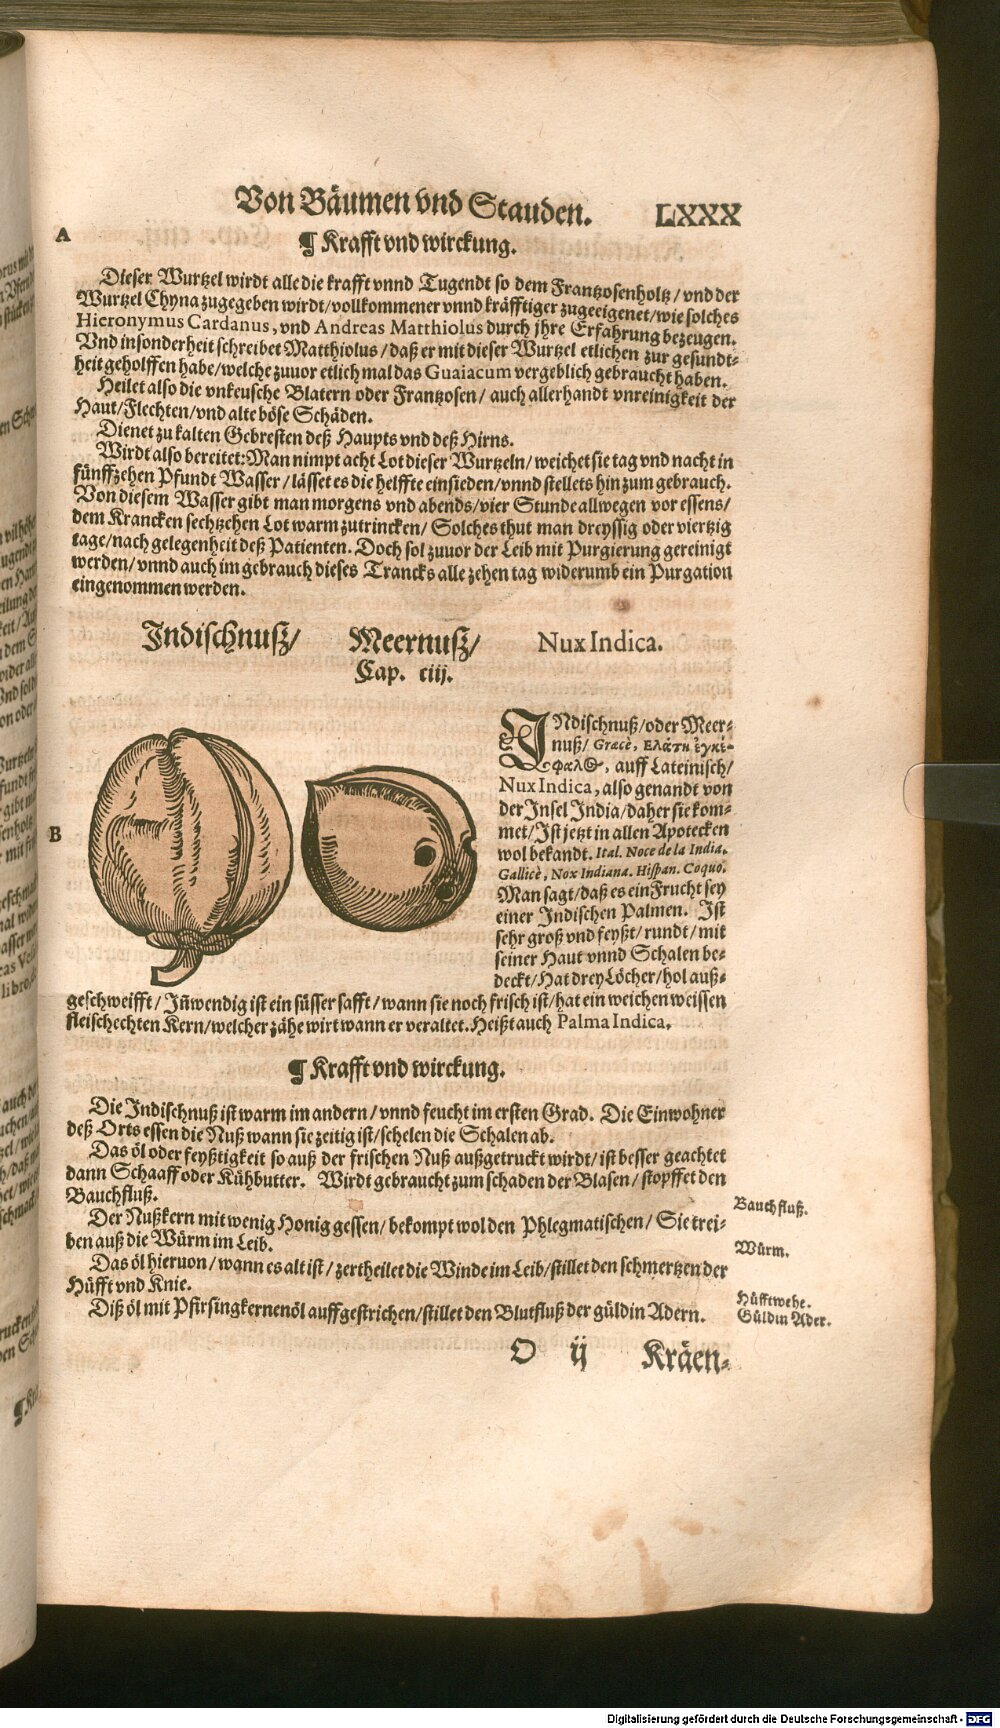 Von Bäumen vnd Stauden. LXXX
A
¶ Krafft vnd wirckung.
Dieser Wurtzel wirdt alle die krafft vnnd Tugendt so dem Frantzosenholtz/ vnd der
Wurtzel Chyna zugegeben wirdt/ vollkommener vnnd kräfftiger zugeeigenet/ wie solches
Hieronymus Cardanus, vnd Andreas Matthiolus durch jhre Erfahrung bezeugen.
Vnd insonderheit schreibet Matthiolus/ daß er mit dieser Wurtzel etlichen zur gesundt-
heit geholffen habe/ welche zuuor etlich mal das Guaiacum vergeblich gebraucht haben.
Heilet also die vnkeusche Blatern oder Frantzosen/ auch allerhandt vnreinigkeit der
Haut/ Flechten/ vnd alte böse Schäden.
Dienet zu kalten Gebresten deß Haupts vnd deß Hirns.
Wirdt also bereitet: Man nimpt acht Lot dieser Wurtzeln/ weichet sie tag vnd nacht in
fünffzehen Pfundt Wasser/ lässet es die helffte einsieden/ vnnd stellets hin zum gebrauch.
Von diesem Wasser gibt man morgens vnd abends/ vier Stunde allwegen vor essens/
dem Krancken sechtzehen Lot warm zutrincken/ Solches thut man dreyssig oder viertzig
tage/ nach gelegenheit deß Patienten. Doch sol zuuor der Leib mit Purgierung gereinigt
werden/ vnnd auch im gebrauch dieses Trancks alle zehen tag widerumb ein Purgation
eingenommen werden.
Indischnuß/ Meernuß/ Nux Indica.
Cap. ciij.
B
INdischnuß/ oder Meer-
nuß/ Græcè, Ελάτη ἐγκέ-
φαλος, auff Lateinisch/
Nux Indica, also genandt von
der Insel India/ daher sie kom-
met/ Ist jetzt in allen Apotecken
wol bekandt. Ital. Noce de la India.
Gallicè, Nox Indiana. Hispan. Coquo.
Man sagt/ daß es ein Frucht sey
einer Indischen Palmen. Ist
sehr groß vnd feyßt/ rundt/ mit
seiner Haut vnnd Schalen be-
deckt/ Hat drey Löcher/ hol auß-
geschweifft/ Iñwendig ist ein süsser safft/ wann sie noch frisch ist/ hat ein weichen weissen
fleischechten Kern/ welcher zähe wirt wann er veraltet. Heißt auch Palma Indica.
¶ Krafft vnd wirckung.
Die Indischnuß ist warm im andern/ vnnd feucht im ersten Grad. Die Einwohner
deß Orts essen die Nuß wann sie zeitig ist/ schelen die Schalen ab.
Das öl oder feyßtigkeit so auß der frischen Nuß außgetruckt wirdt/ ist besser geachtet
dann Schaaff oder Kühbutter. Wirdt gebraucht zum schaden der Blasen/ stopffet den
Bauchfluß.
Bauchfluß.
Der Nußkern mit wenig Honig gessen/ bekompt wol den Phlegmatischen/ Sie trei-
ben auß die Würm im Leib.
Würm.
Das öl hieruon/ wann es alt ist/ zertheilet die Winde im Leib/ stillet den schmertzen der
Hüfft vnd Knie.
Hüfftwehe.
Diß öl mit Pfirsingkernenöl auffgestrichen/ stillet den Blutfluß der güldin Adern.
Güldin Ader.
O ij Kräen-
Digitalisierung gefördert durch die Deutsche Forschungsgemeinschaft - DFG